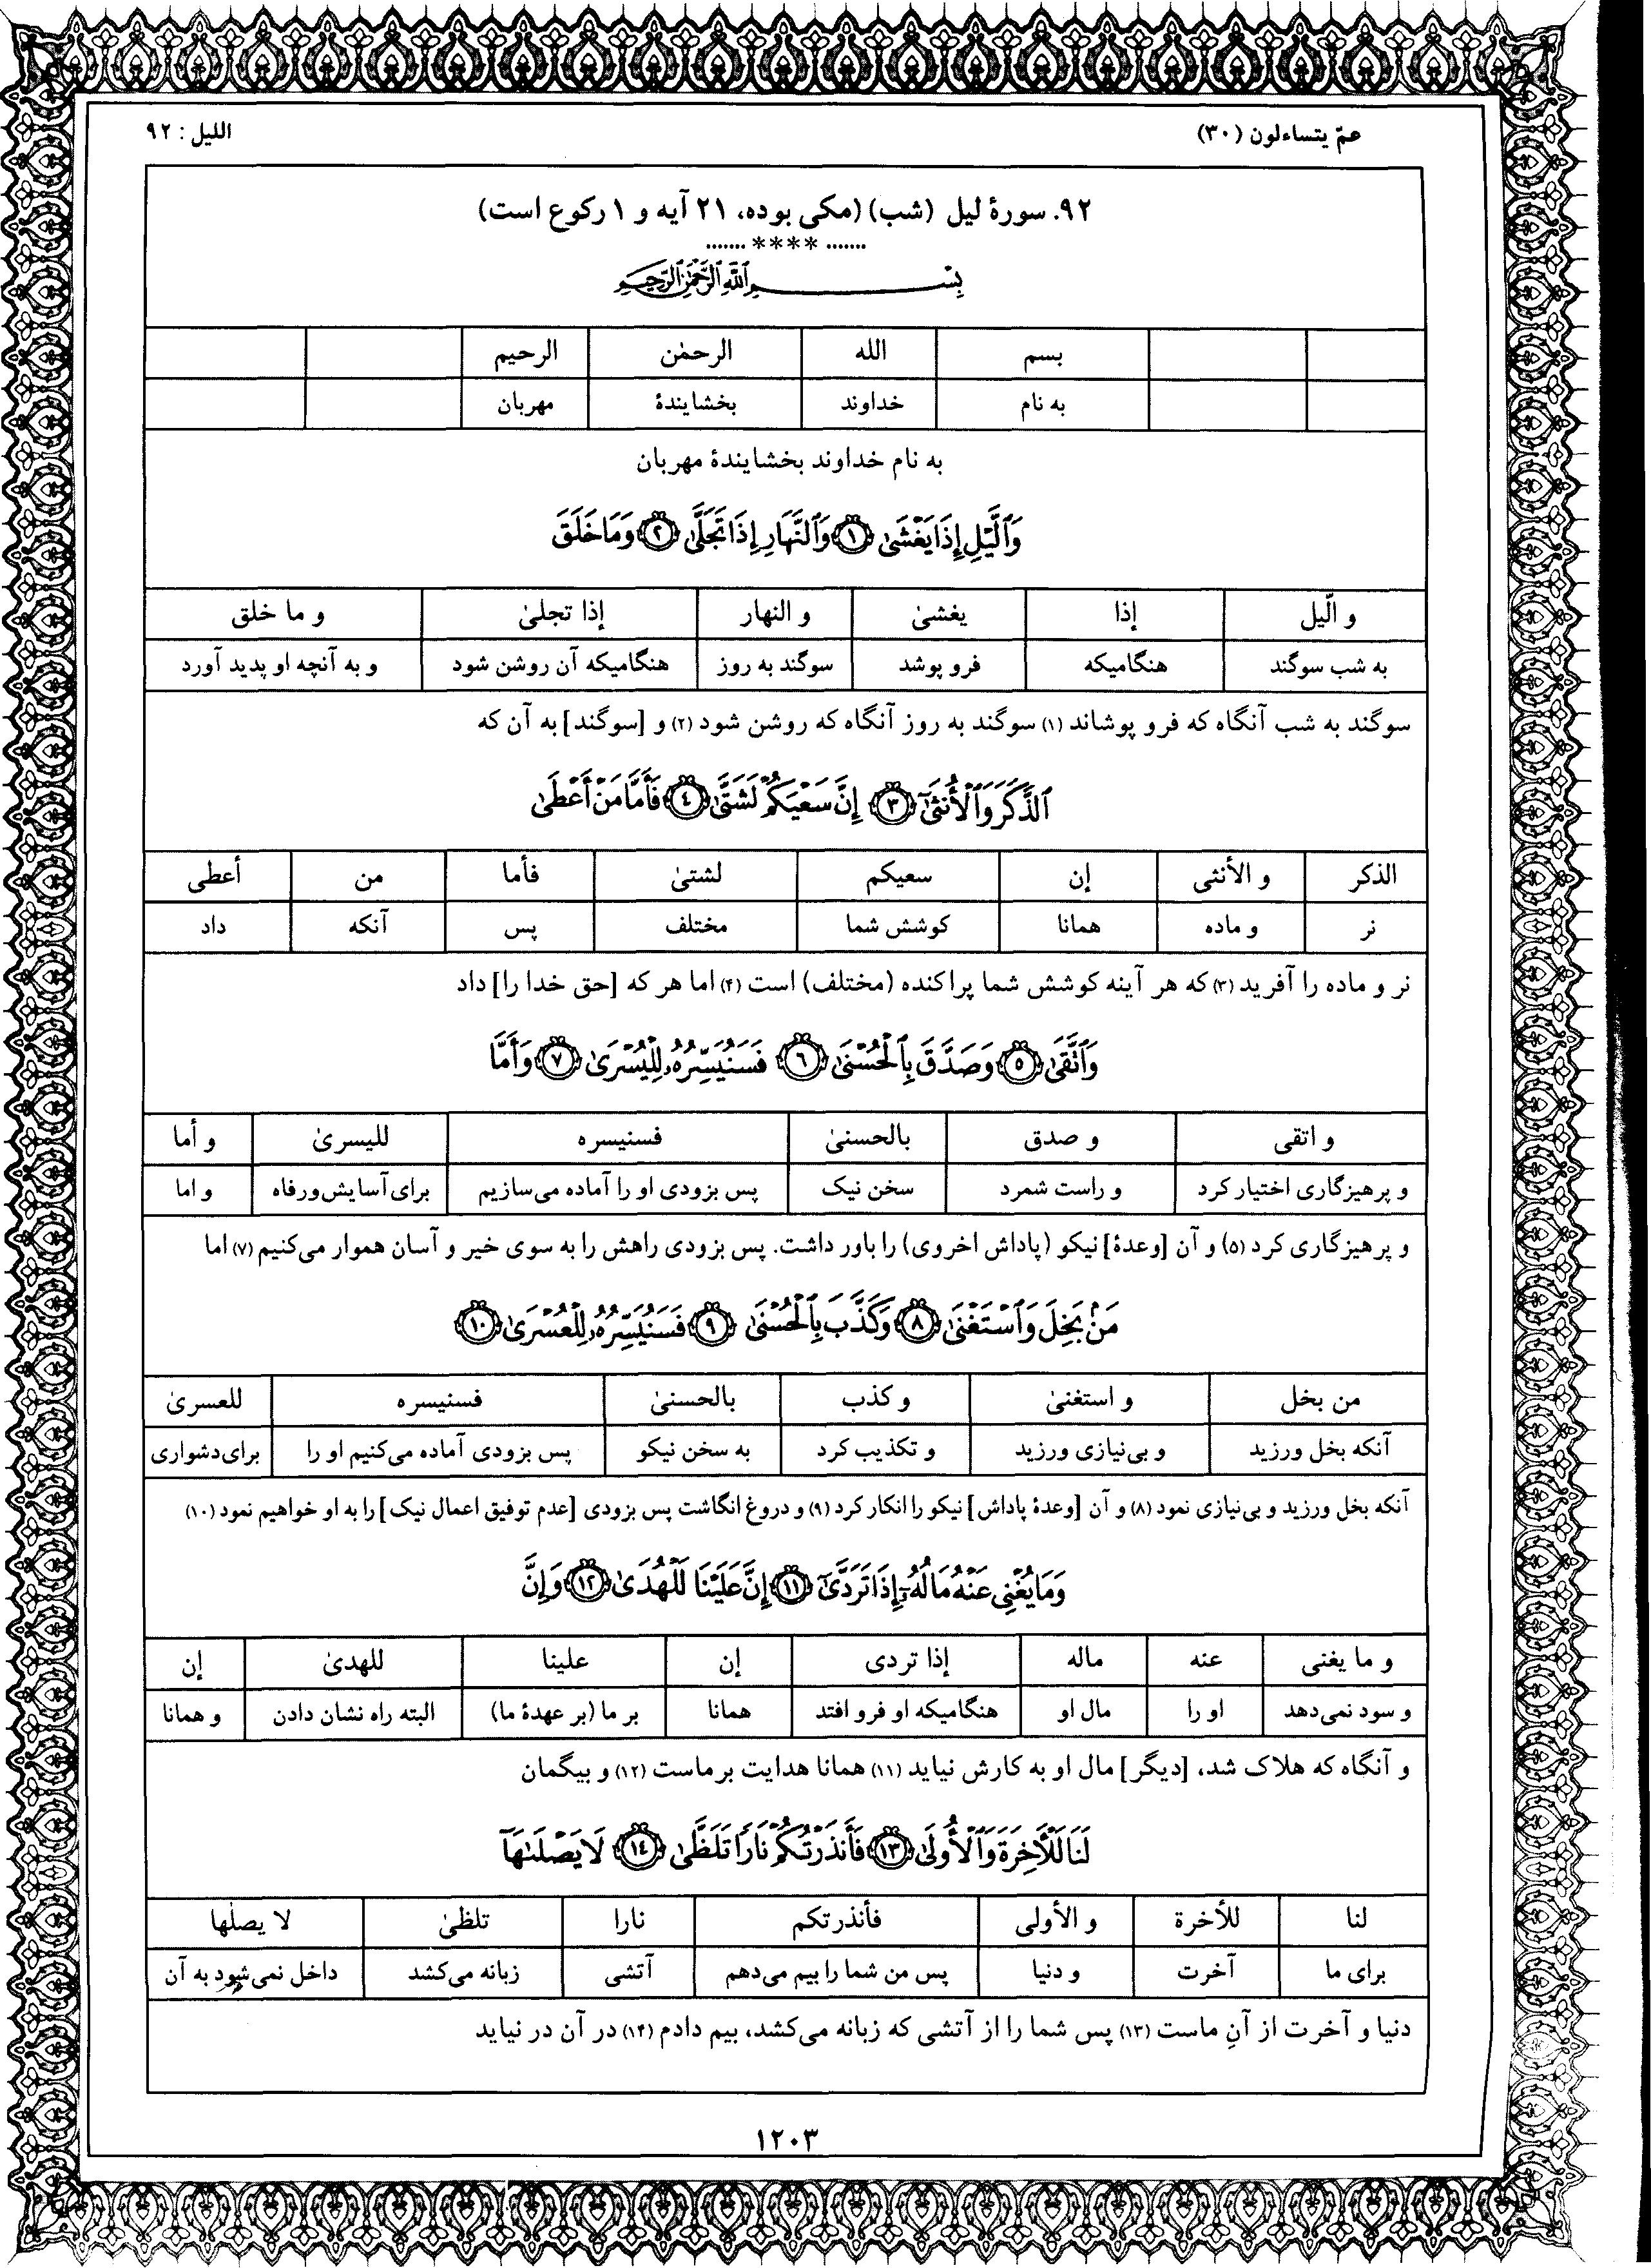 عمّ یتساءلون (۳۰)
اللیل : ۹۲
۹۲. سورهٔ لیل (شب) (مکی بوده، ۲۱ آیه و ۱ رکوع است)
....... **** .......
بِسْمِ ٱللَّهِ ٱلرَّحْمَٰنِ ٱلرَّحِيمِ
بسم الله الرحمٰن الرحیم
به نام خداوند بخشایندهٔ مهربان
به نام خداوند بخشایندهٔ مهربان
وَٱلَّيْلِ إِذَا يَغْشَىٰ ۝١ وَٱلنَّهَارِ إِذَا تَجَلَّىٰ ۝٢ وَمَا خَلَقَ
و الّیل إذا یغشیٰ و النهار إذا تجلیٰ و ما خلق
به شب سوگند هنگامیکه فرو پوشد سوگند به روز هنگامیکه آن روشن شود و به آنچه او پدید آورد
سوگند به شب آنگاه که فرو پوشاند (۱) سوگند به روز آنگاه که روشن شود (۲) و [سوگند] به آن که
ٱلذَّكَرَ وَٱلْأُنثَىٰٓ ۝٣ إِنَّ سَعْيَكُمْ لَشَتَّىٰ ۝٤ فَأَمَّا مَنْ أَعْطَىٰ
الذکر و الأنثی إن سعیکم لشتیٰ فأما من أعطی
نر و ماده همانا کوشش شما مختلف پس آنکه داد
نر و ماده را آفرید (۳) که هر آینه کوشش شما پراکنده (مختلف) است (۴) اما هر که [حق خدا را] داد
وَٱتَّقَىٰ ۝٥ وَصَدَّقَ بِٱلْحُسْنَىٰ ۝٦ فَسَنُيَسِّرُهُۥ لِلْيُسْرَىٰ ۝٧ وَأَمَّا
و اتقی و صدق بالحسنیٰ فسنیسره للیسریٰ و أما
و پرهیزگاری اختیار کرد و راست شمرد سخن نیک پس بزودی او را آماده می‌سازیم برای آسایش‌ورفاه و اما
و پرهیزگاری کرد (۵) و آن [وعدهٔ] نیکو (پاداش اخروی) را باور داشت. پس بزودی راهش را به سوی خیر و آسان هموار می‌کنیم (۷) اما
مَنۢ بَخِلَ وَٱسْتَغْنَىٰ ۝٨ وَكَذَّبَ بِٱلْحُسْنَىٰ ۝٩ فَسَنُيَسِّرُهُۥ لِلْعُسْرَىٰ ۝١٠
من بخل و استغنیٰ و کذب بالحسنیٰ فسنیسره للعسریٰ
آنکه بخل ورزید و بی‌نیازی ورزید و تکذیب کرد به سخن نیکو پس بزودی آماده می‌کنیم او را برای‌دشواری
آنکه بخل ورزید و بی‌نیازی نمود (۸) و آن [وعدهٔ پاداش] نیکو را انکار کرد (۹) و دروغ انگاشت پس بزودی [عدم توفیق اعمال نیک] را به او خواهیم نمود (۱۰)
وَمَا يُغْنِى عَنْهُ مَالُهُۥٓ إِذَا تَرَدَّىٰٓ ۝١١ إِنَّ عَلَيْنَا لَلْهُدَىٰ ۝١٢ وَإِنَّ
و ما یغنی عنه ماله إذا تردی إن علینا للهدیٰ إن
و سود نمی‌دهد او را مال او هنگامیکه او فرو افتد همانا بر ما (بر عهدهٔ ما) البته راه نشان دادن و همانا
و آنگاه که هلاک شد، [دیگر] مال او به کارش نیاید (۱۱) همانا هدایت بر ماست (۱۲) و بیگمان
لَنَا لَلْءَاخِرَةَ وَٱلْأُولَىٰ ۝١٣ فَأَنذَرْتُكُمْ نَارًا تَلَظَّىٰ ۝١٤ لَا يَصْلَىٰهَآ
لنا للأخرة و الأولی فأنذرتکم نارا تلظیٰ لا یصلٰها
برای ما آخرت و دنیا پس من شما را بیم می‌دهم آتشی زبانه می‌کشد داخل نمی‌شود به آن
دنیا و آخرت از آنِ ماست (۱۳) پس شما را از آتشی که زبانه می‌کشد، بیم دادم (۱۴) در آن در نیاید
۱۲۰۳